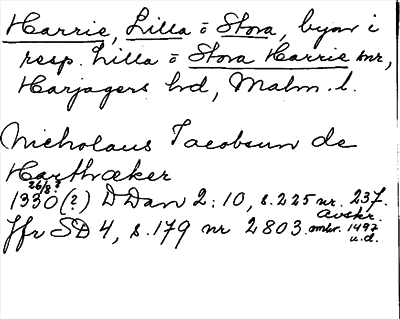 Harrie, Lilla o Stora, byar i
resp. Lilla o Stora Harrie snr,
Harjagers hd, Malm. l.
Nicholaus Jacobsun de
Harthræker
26/8?
1330 (?) DDan 2:10, s. 225 nr. 237.
Avskr.
Jfr SD 4, s. 179 nr 2803. omkr. 1497
u.d.